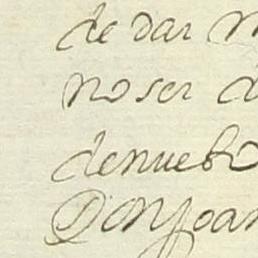 de dar
no ser d
denuebo
Don Joan